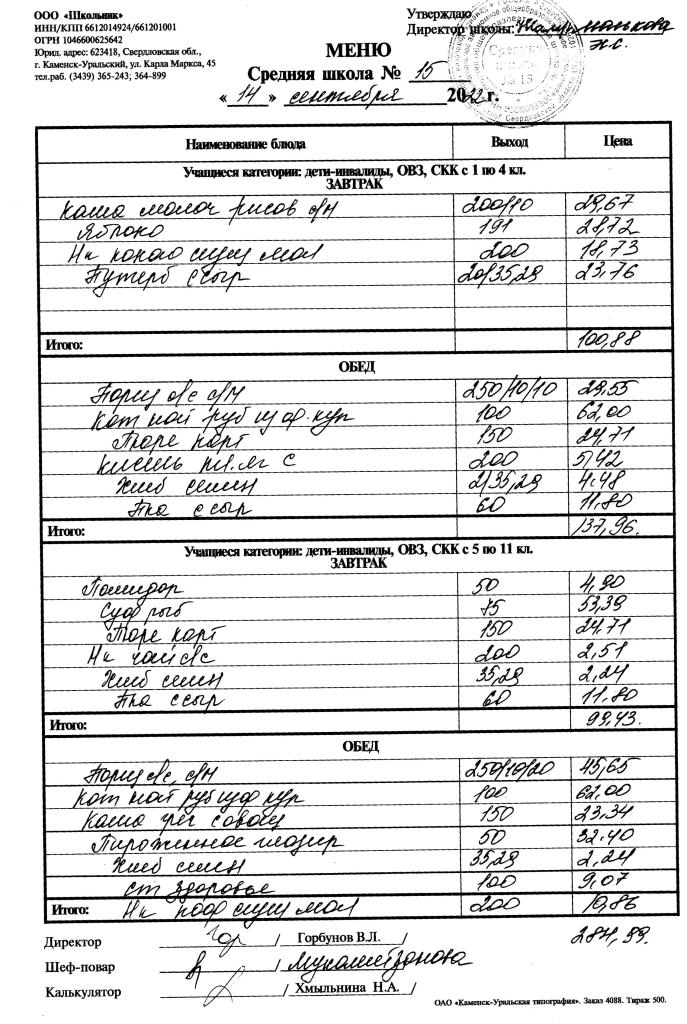 ООО «Школьник»
ИНН/КПП 6612014924/661201001
ОГРН 1046600625642
Юрид. адрес: 623418, Свердловская обл.,
г. Каменск-Уральский, ул. Карла Маркса, 45
тел.раб. (3439) 365-243; 364-899
Утверждаю
Директор школы:
МЕНЮ
Средняя школа № 15
« 14 » сентября 2022 г.
Наименование блюда Выход Цена
Учащиеся категории: дети-инвалиды, ОВЗ, СКК с 1 по 4 кл.
ЗАВТРАК
Каша молоч рисов с/м 200/10 29,67
Яблоко 191 28,72
Н/к какао сгущ мол 200 18,73
Бутерб с сыр 20/35,29 23,76
Итого: 100,88
ОБЕД
Борщ с/с с/м 250/10/10 29,55
Кот нат руб кур 100 62,00
Пюре карт 150 24,71
Кисель 200 5,42
Хлеб 2/35,29 4.48
с сыр 60 11.80
Итого: 137,96.
Учащиеся категории: дети-инвалиды, ОВЗ, СКК с 5 по 11 кл.
ЗАВТРАК
Помидор 50 4,90
Суф рыб 75 53,39
Пюре карт 150 24.71
Н/к чай с/с 200 2,51
Хлеб 35,29 2,24
с сыр 60 11.80
Итого: 99,43.
ОБЕД
Борщ с/с, с/м 250/10/20 45,65
Кот нат руб кур 100 62,00
Каша греч 150 23.34
Пирожное глазир 50 32.40
Хлеб 35,29 2,24
ст здоровье 100 9,07
Итого: Н/к коф сгущ мол 200 10,86
284,99.
Директор / Горбунов В.Л. /
Шеф-повар /
Калькулятор / Хмыльнина Н.А. /
ОАО «Каменск-Уральская типография». Заказ 4088. Тираж 500.